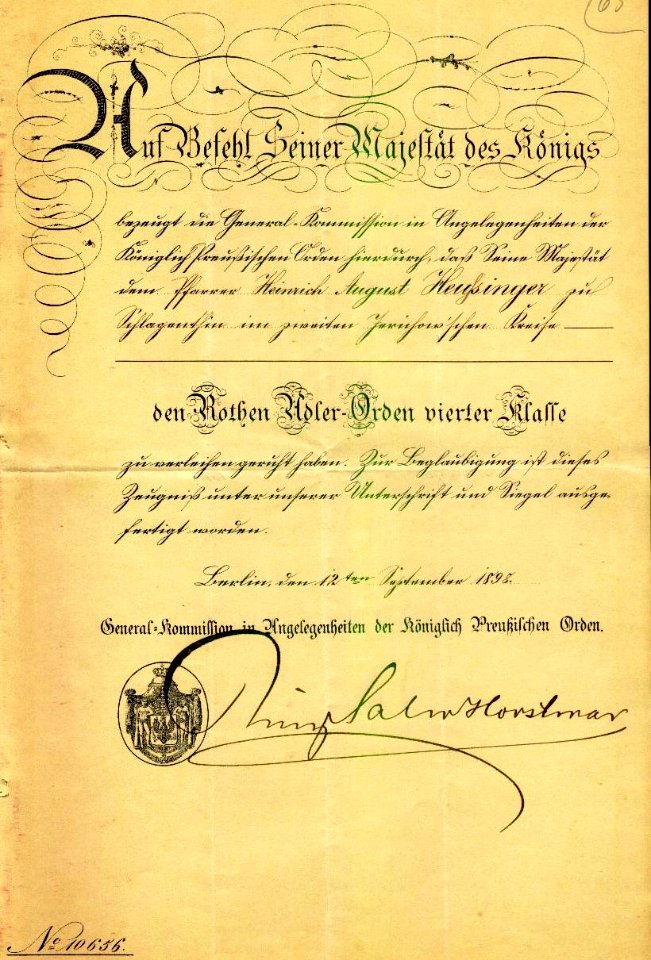 65
Auf Befehl Seiner Majestät des Königs
bezeugt die General-Kommission in Angelegenheiten der
Königlich Preußischen Orden hierdurch, daß Seine Majestät
dem Pfarrer Heinrich August Heußinger zu
Schlagenthin im zweiten Jerichow'schen Kreise
den Rothen Adler-Orden vierter Klasse
zu verleihen geruht haben. Zur Beglaubigung ist dieses
Zeugniß unter unserer Unterschrift und Siegel ausge-
fertigt worden.
Berlin, den 12ten September 1898.
General-Kommission in Angelegenheiten der Königlich Preußischen Orden.
Prinz Salm Horstmar
No 10656.